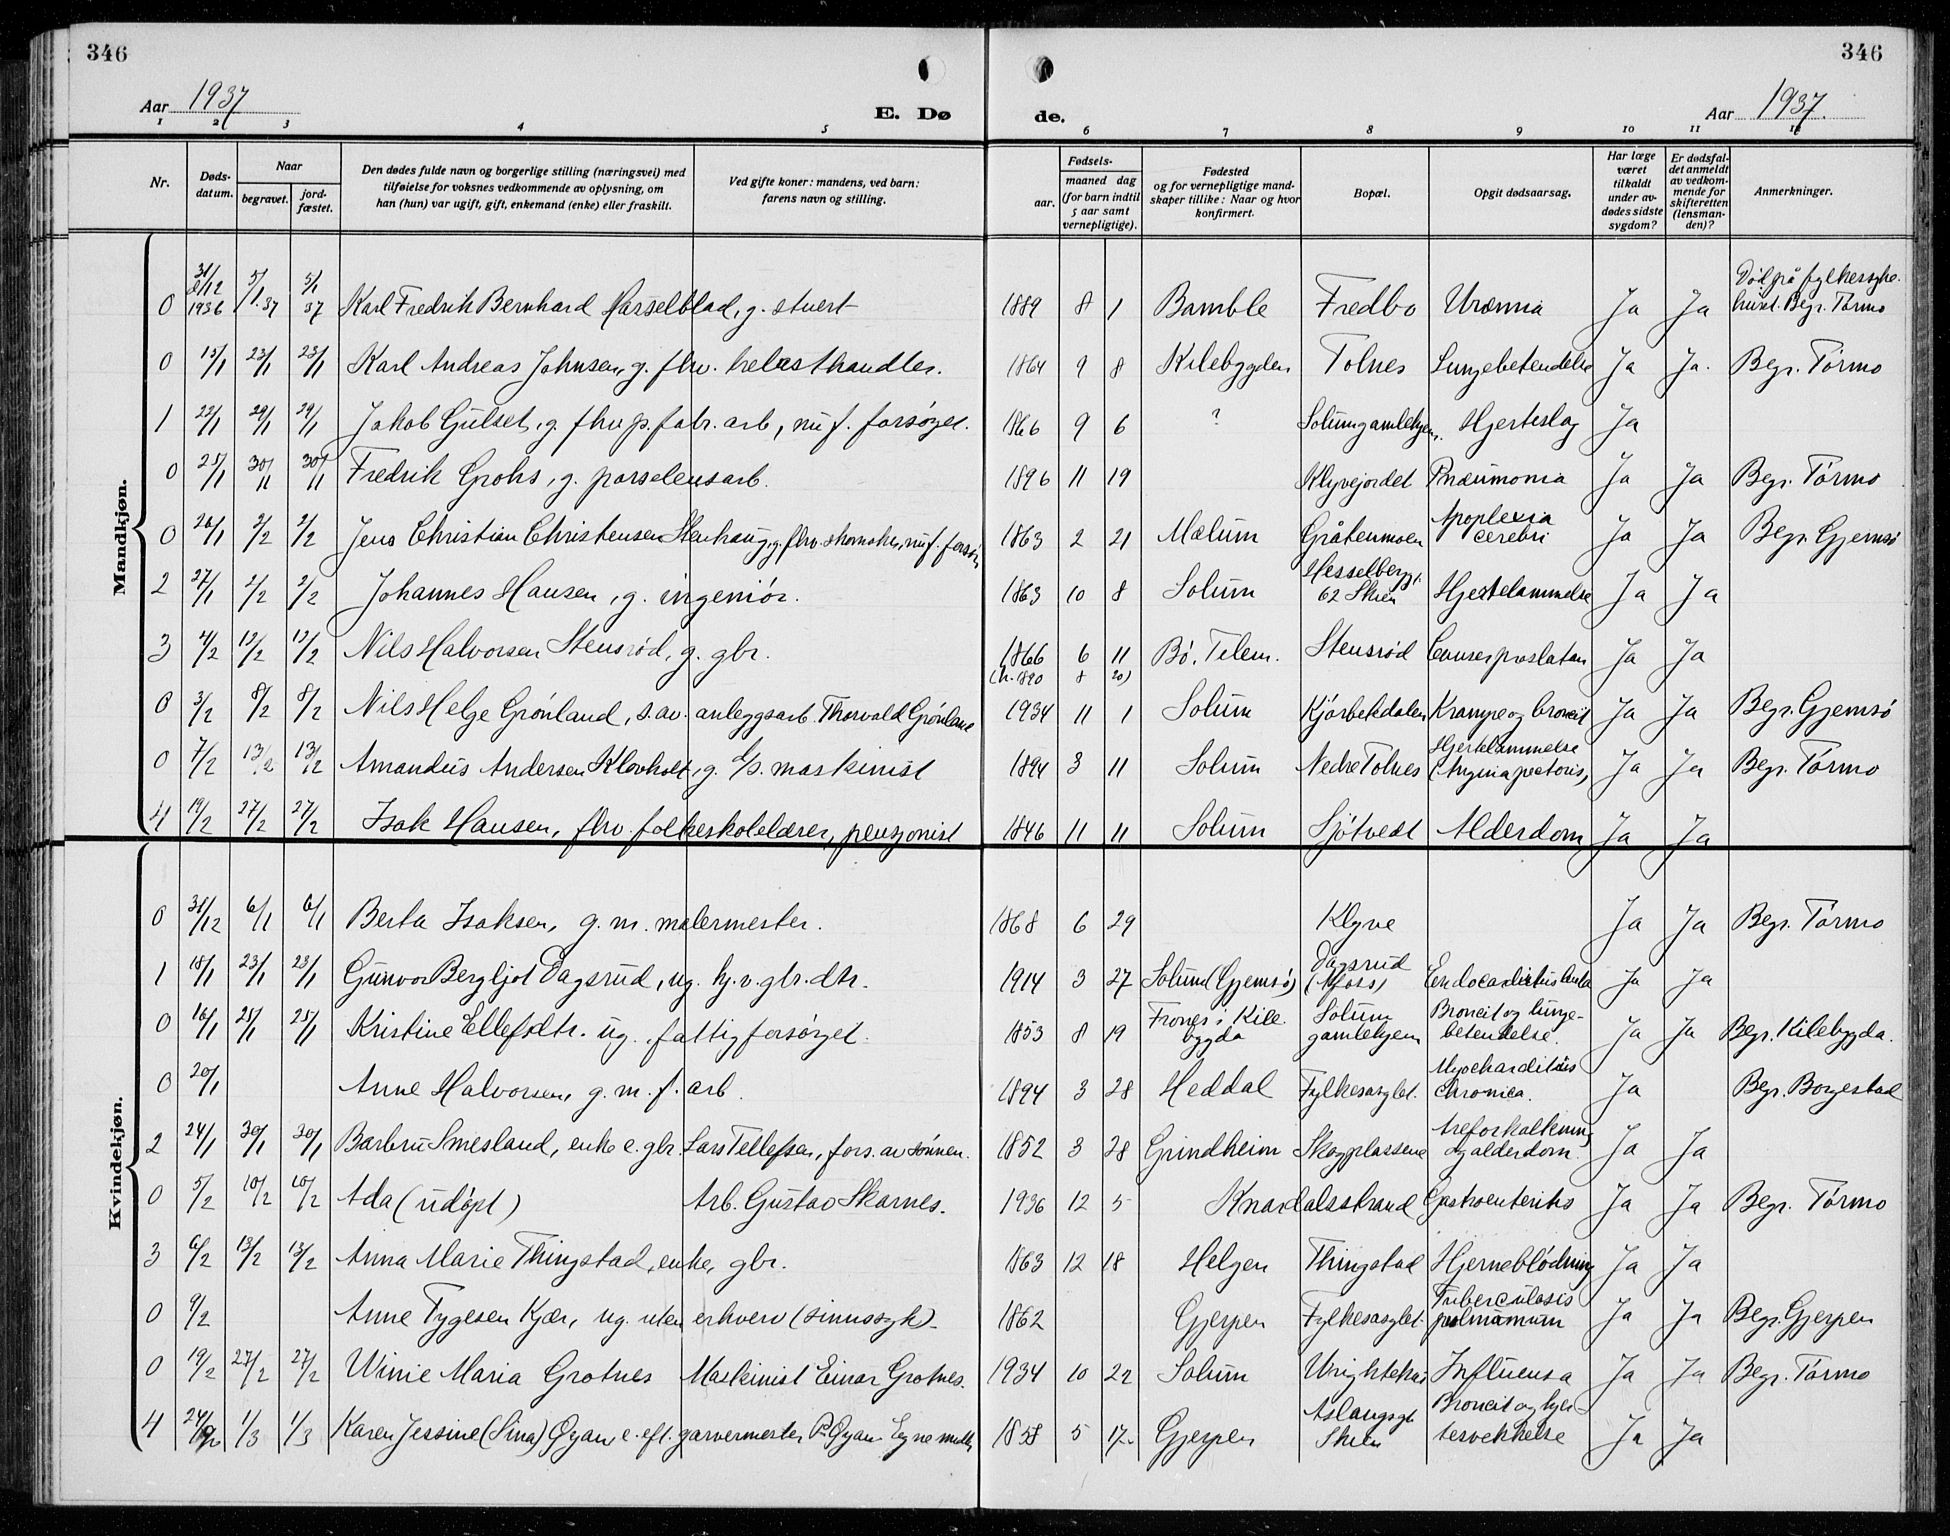 346
346
Aar 1937
E. Dø
de.
Aar 1937.
1 2 3 4 5 6 7 8 9 10 11 12
Nr.
Døds-datum.
Naar
begravet.
jord-fæstet.
Den dødes fulde navn og borgerlige stilling (næringsvei) med
tilføielse for voksnes vedkommende av oplysning, om
han (hun) var ugift, gift, enkemand (enke) eller fraskilt.
Ved gifte koner: mandens, ved barn:
farens navn og stilling.
Fødsels-
aar.
maaned dag
(for barn indtil
5 aar samt
vernepligtige).
Fødested
og for vernepligtige mand-
skaper tillike: Naar og hvor
konfirmert.
Bopæl.
Opgit dødsaarsag.
Har læge
været
tilkaldt
under av-
dødes sidste
sygdom?
Er dødsfal-
det anmeldt
av vedkom-
mende for
skifteretten
(lensman-
den)?
Anmerkninger.
Mandkjøn.
0 31/12 1936 5/1.37 5/1 37 Karl Fredrik Bernhard Hasselblad, g. stuert 1889 8 1 Bamble Fredbo Uræmia Ja Ja Død på fylkessyke-huset. Begr. Tórmo
0 15/1 23/1 23/1 Karl Andreas Johnsen, g. fhv. helesthandler. 1864 9 8 Kilebygden Tolnes Lungebetendelse Ja Ja. Begr. Tórmo
1 22/1 29/1 29/1 Jakob Gulset, g. fhv. p. fabr. arb, nu f. forsørget. 1866 9 6 ? Solumgamlehjem. Hjerteslag Ja
0 25/1 30/1 30/1 Fredrik Grohs, g. porselensarb. 1896 11 19 Klyvejordet Pneumonia Ja Ja Begr. Tórmo
0 26/1 2/2 2/2 Jens Christian Christensen Stenhaug, g. fhv. skomaker, nu f. forsør. 1863 2 21 Mælum Gråtenmoen Apoplexia cerebri Ja Ja Begr. Gjemsó
2 27/1 2/2 2/2 Johannes Hansen, g. ingeniór. 1863 10 8 Solum Hesselbergg. 62 Skien Hjertelammelse Ja Ja
3 4/2 12/2 12/2 Nils Halvorsen Stensrød, g. gbr. 1866 6 11 (h. 890 8 20) Bó, Telem. Stensrød Cancer prostatan Ja Ja
0 3/2 8/2 8/2 Nils Helge Grønland, s. av. anleggsarb. Thorvald Grønland 1934 11 1 Solum Kjórbekdalen Krampe og broncit Ja Ja Begr. Gjemsó
0 7/2 13/2 13/2 Amandus Andersen Klovholt, g. e/s. maskinist 1894 3 11 Solum Nedre Tolnes Hjertelammelse (Angina pectoris) Ja Ja Begr. Tórmo
4 19/2 27/2 27/2 Isak Hansen, fhv. folkeskolelærer, pensjonist 1846 11 11 Solum Sjótvedt Alderdom Ja Ja
Kvindekjøn.
0 31/12 6/1 6/1 Berta Isaksen, g. m. malermester. 1868 6 29 Klyve Ja Ja Begr. Tórmo
1 18/1 23/1 23/1 Gunvor Bergljot Dagsrud, ug. hj. v. gbr. dtr. 1914 3 27 Solum (Gjemsó) Dagsrud (Afoss) Endocarditis lenta Ja Ja
0 16/1 25/1 25/1 Kristine Ellefsdtr. ug. fattigforsørget. 1853 8 19 Frones i Kilebygda Solum gamlehjem Broncit og lunge-betendelse. Ja Ja Begr. Kilebygda.
0 20/1 Anne Halvorsen, g. m. f. arb. 1894 3 28 Heddal Fylkesasylet. Myocharditis chronica. Ja Begr. Borgestad
2 24/1 30/1 30/1 Barbru Smesland, enke e. gbr. Lars Tellefsen, fors. av sønnen. 1852 3 28 Grindheim Skogplassene Areforkalkning og alderdom. Ja Ja
0 5/2 10/2 10/2 Ada (udópt) Arb. Gustav Skarnes. 1936 12 5 Knardalsstrand Gastroenteritis Ja Ja Begr. Tórmo
3 6/2 13/2 13/2 Anna Marie Thingstad, enke, gbr. 1863 12 18 Helgen Thingstad Hjerneblódning Ja Ja
0 9/2 Anne Tygesen Kjær, ug. uten erhverv (sinnssyk). 1862 Gjerpen Fylkesasylet. Tuberculosis pulmamum Ja Ja Begr. Gjerpen
0 19/2 27/2 27/2 Winie Maria Grotnes Maskinist Einar Grotnes. 1934 10 22 Solum Influensa Ja Ja Begr. Tórmo
4 24/2 1/3 1/3 Karen Jessine (Sina) Gyan, e. eft. garvermester P. Gyan. Egne midl. 1858 5 17. Gjerpen Aslaugsgt. Skien Broncit og hjer-tesvekkelse Ja Ja